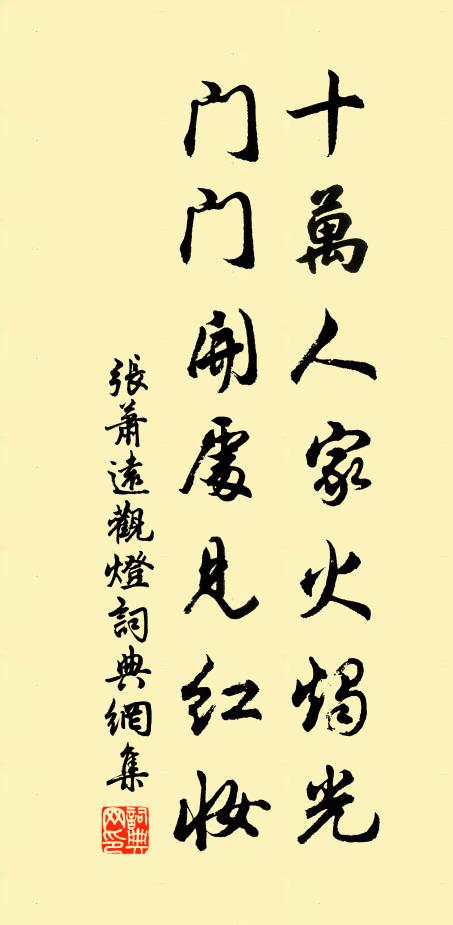 十萬人家火燭光
門門開處見紅妝
張蕭遠觀燈詞典網集
詞典网印